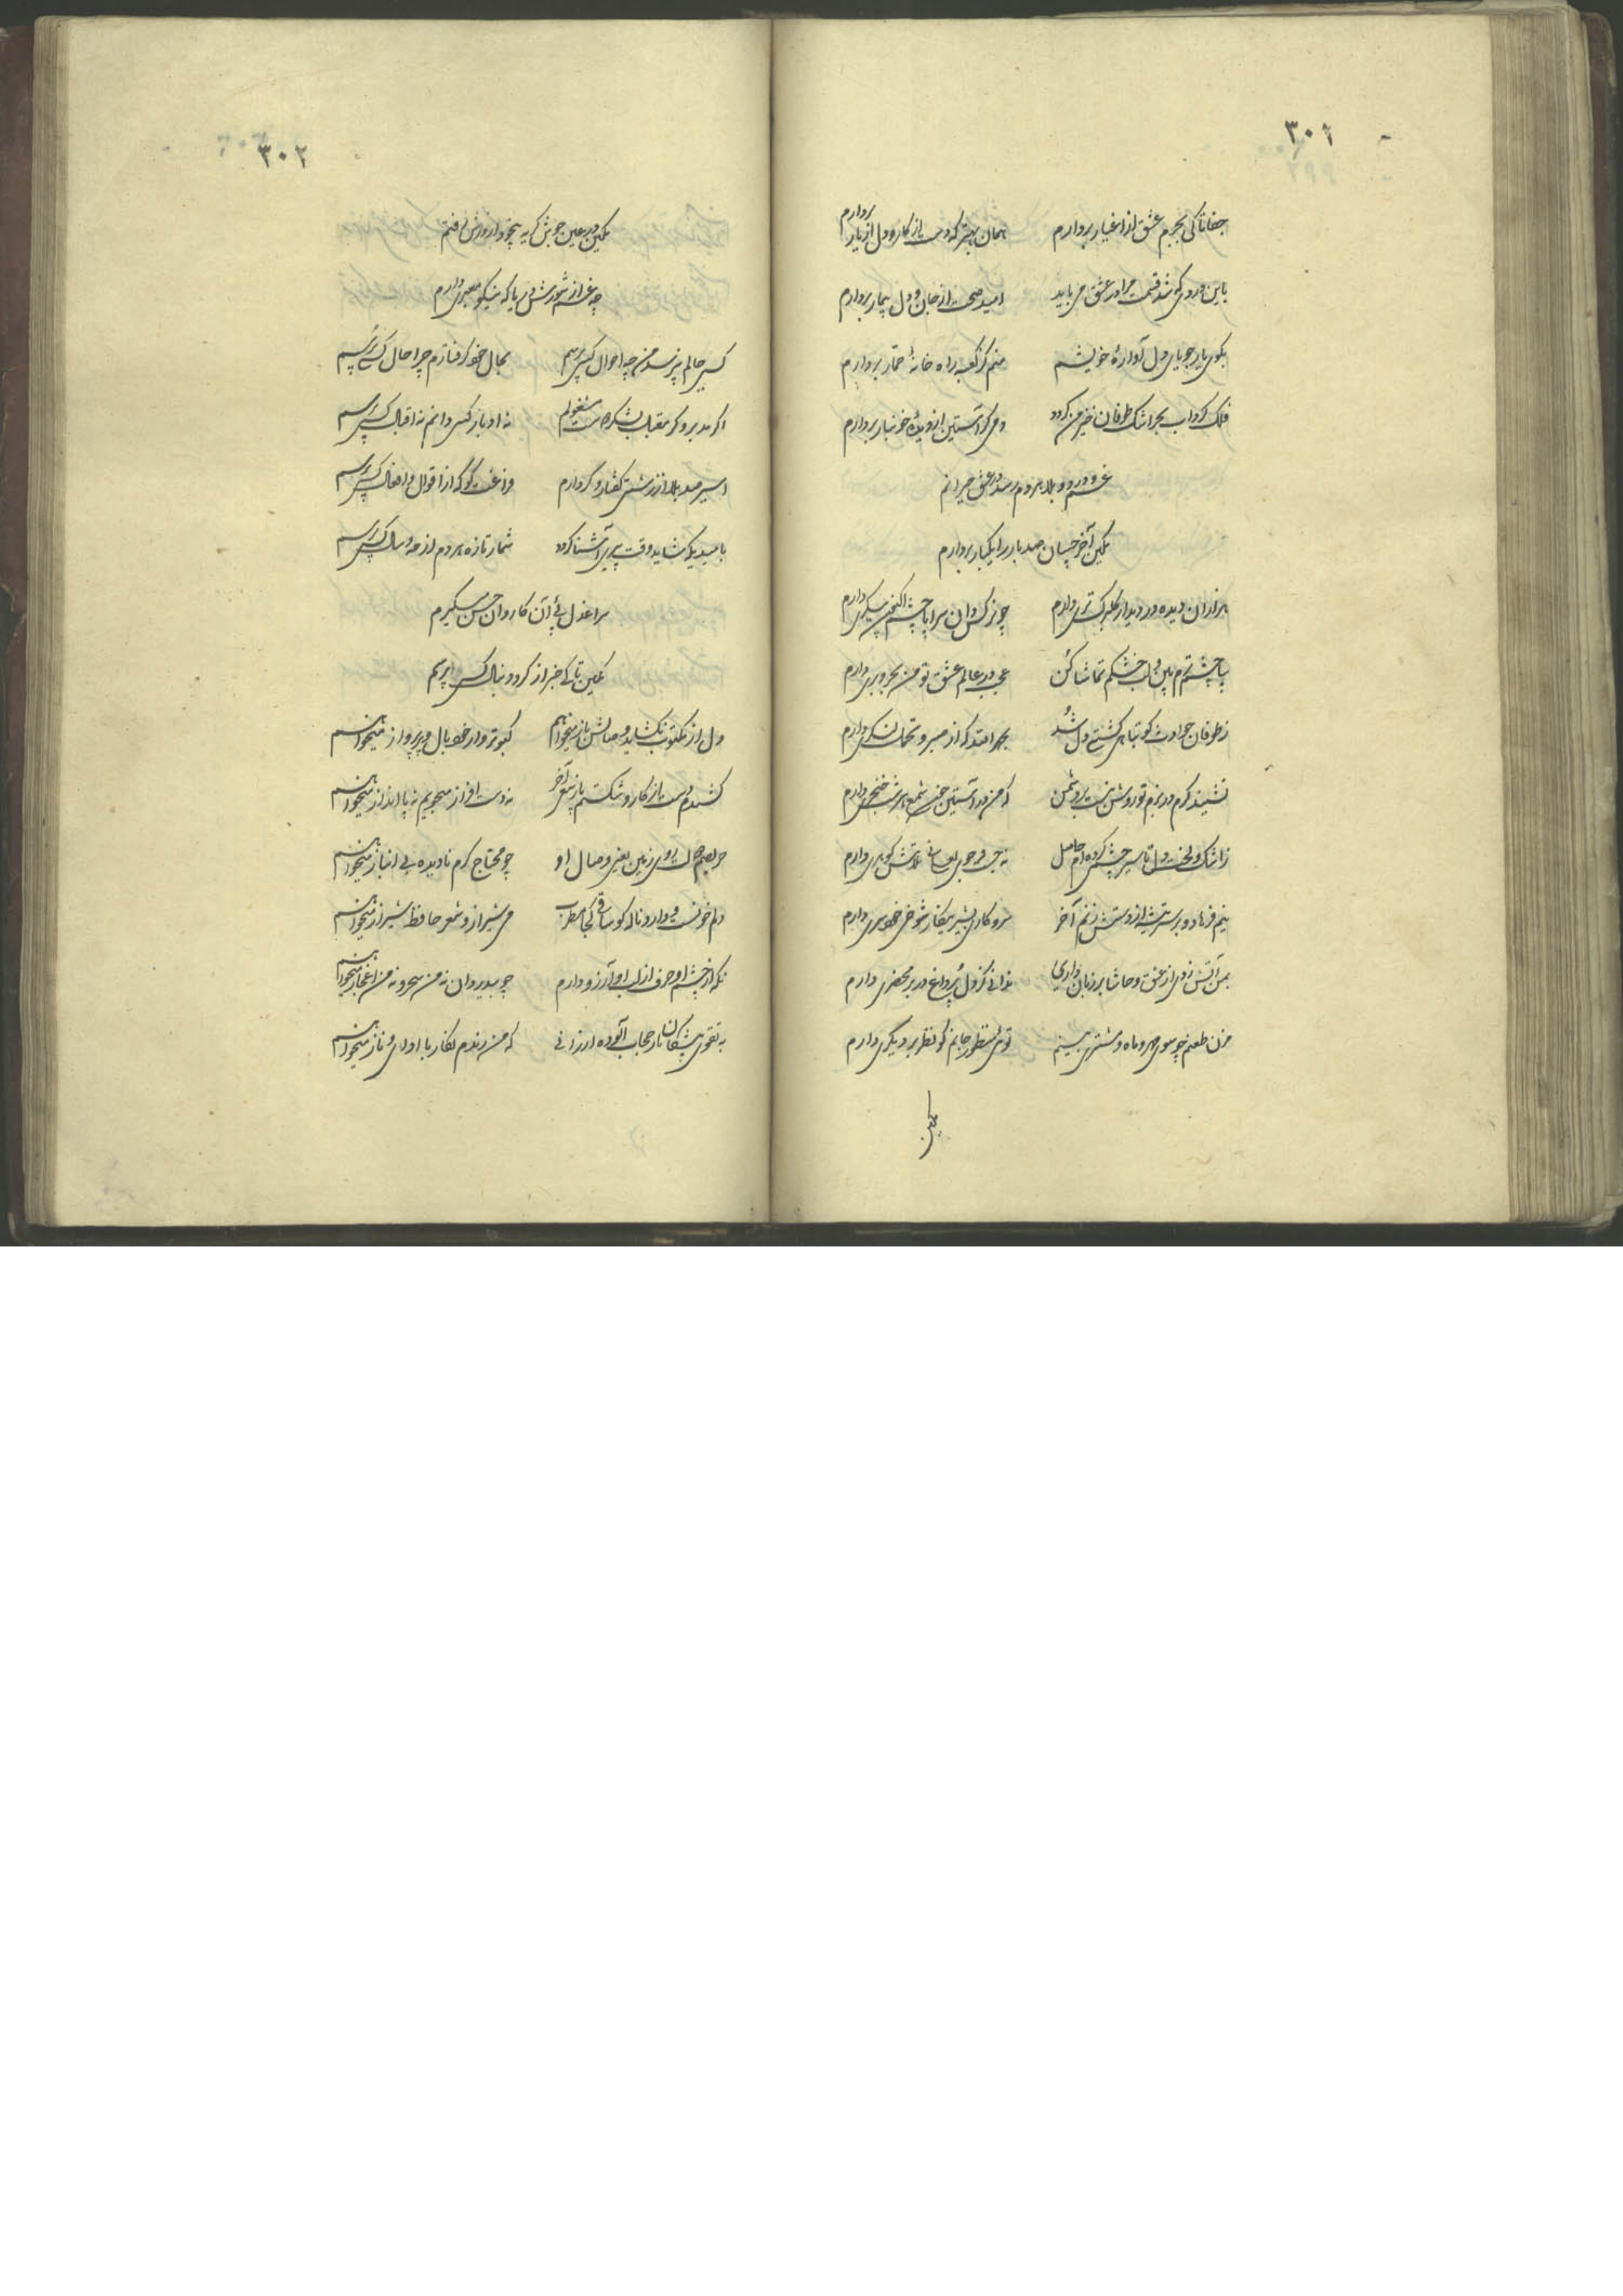 ۳۰۱
جفا تا کی بجرم عشق از اغیار بردارم همان بهتر که دست از کار و دل از یار بردارم
باین دردی که شد قسمت مرا در عشق می باید امید صحت از جان و دل بیمار بردارم
بکوی یار جویای دل آوارهٔ خویشم منم کز کعبه راه خانهٔ خمار بردارم
فلک گرداب بحر اشک طوفان خیز من گردد دمی گر آستین از دیدهٔ خونبار بردارم
غم و درد و بلا هر دم رسد در عشق حیرانم
مکین آخر چسان صد بار را یکبار بردارم
هزاران دیده در دیدار گلبرگ تری دارم چو نرگس دان سراپا چشم اگر پیکری دارم
بیا چشم ترم بین و لب خشکم تماشا کن عجب در عالم عشق تو من بحر و بری دارم
ز طوفان حوادث گو تباهی کشتی دل شد بحمدالله که از صبر و تحمل لنگری دارم
نشیند گرم در بزم تو روشن نیست بر دشمن که من در آستین چون شمع هر شب خنجری دارم
ز اشک و لخت دل تا سیر چشمی کرده ام حاصل نه جیب و جوی لعلی نه تلاش گوهری دارم
نیم فرهاد و بر سر تیشه از دستش زنم آخر سر و کاری بشیرین کار شوخی خسروی دارم
بمن آتش زدی از عشق و حاشا بر زبان داری ندانی کز دل پر داغ در بر محضری دارم
مزن طعنم چو سوی مهر و ماه و مشتری بینم توئی منظور جانم گو نظر بر دیگری دارم
مکین
۳۰۲
مکین در عین جوش گریه بیخود از درش رفتم
چه غم از شورش دریا که نیکو معبری دارم
کسی حالم نپرسد من چه احوال کسی پرسم بحال خود گرفتارم چرا حال کسی پرسم
اگر مدبر و گر مقبل بشکر دوست مشغولم نه ادبار کسی دانم نه اقبال کسی پرسم
اسیر صد بلا از زشتی گفتار و کردارم فراغت کو که از اقوال و افعال کسی پرسم
بامیدی که شاید وقت پیری آشنا گردد شمار تازه هر دم از مه و سال کسی پرسم
سراغ دل پی آن کاروان حسن میگیرم
مکین تا کی خبر از گرد دنبال کسی پرسم
دل از مکتوب نگشاید وصالش باز میخواهم کبوتر وار خود بال و پر پرواز میخواهم
کشیدم دست از کار و شکستم پا ز سعی آخر نه دست افزار میجویم نه پا انداز میخواهم
حریصم حاصل روی زمین یعنی وصال او چو محتاج کرم نادیده بی انباز میخواهم
دلم خونست و دارد ناله کو ساقی کجا مطرب می شیراز و شعر حافظ شیراز میخواهم
نگه از چشم او حرف از لب او آرزو دارم چو بیدردان نه من سحر و نه من اعجاز میخواهم
به تقوی پیشگان ناز حجاب آلوده ارزانی که من رندم نگار با ادا و ناز میخواهم